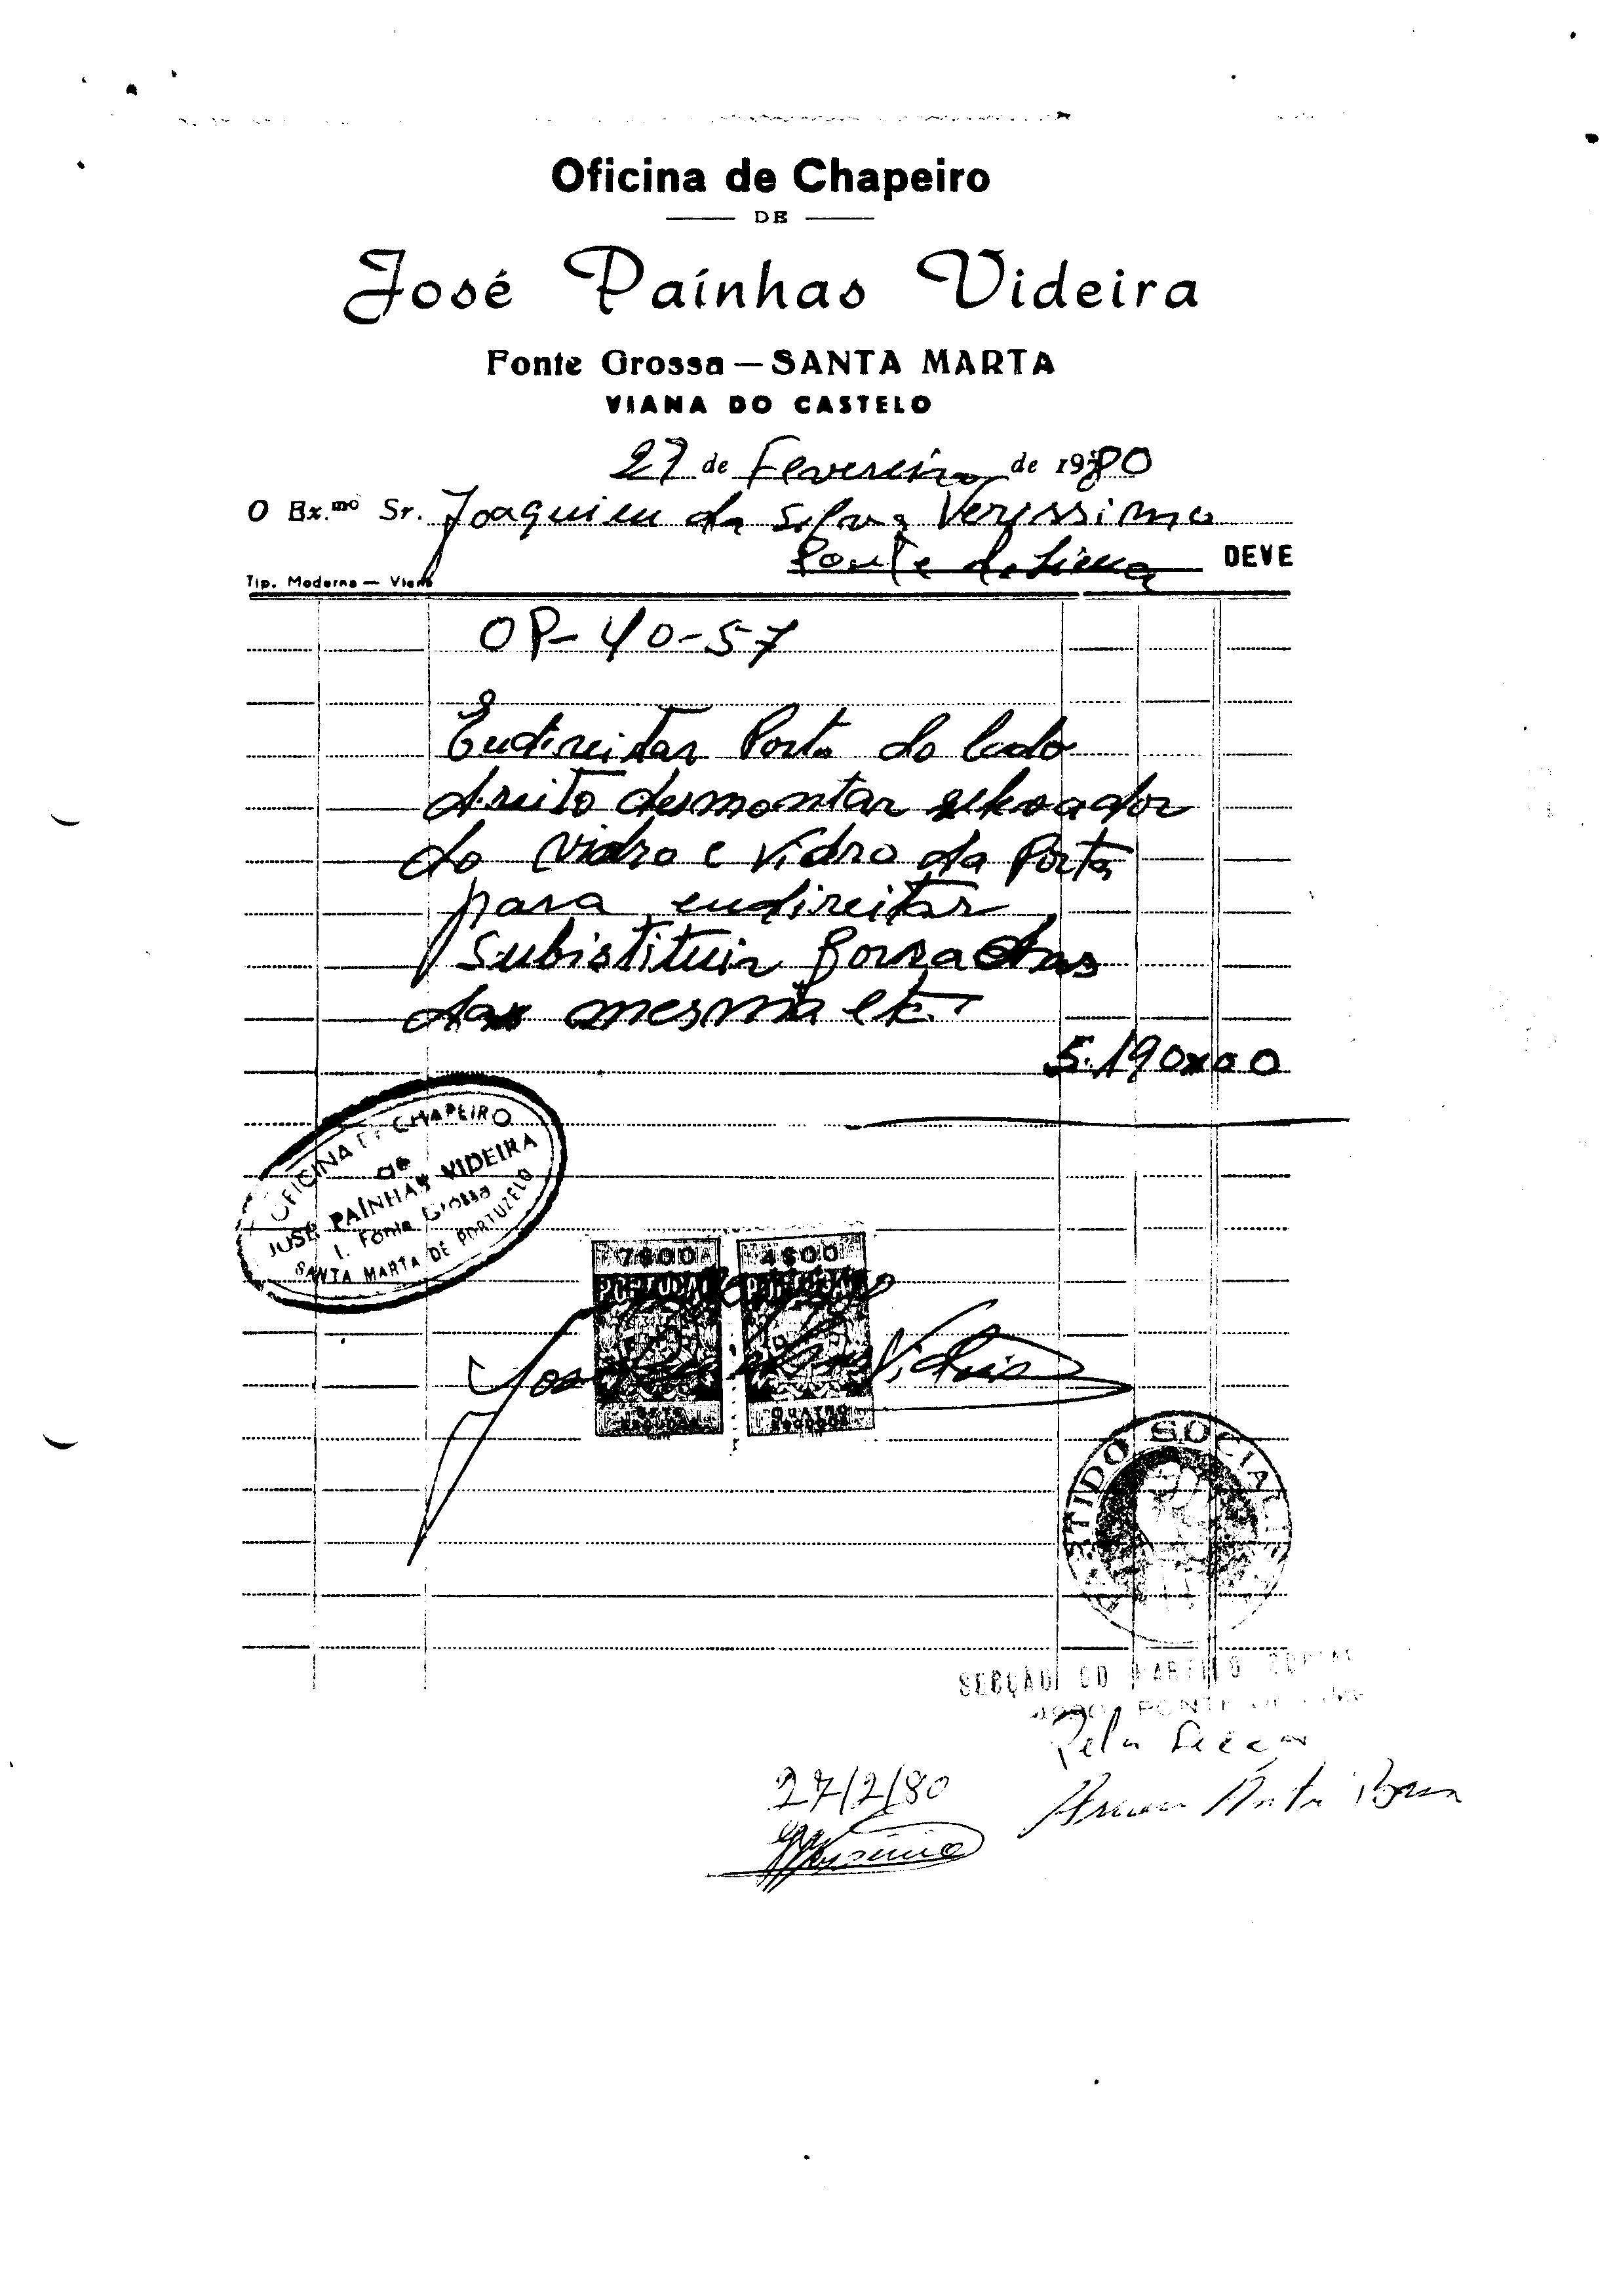 Oficina de Chapeiro
DE
José Paínhas Videira
Fonte Grossa — SANTA MARTA
VIANA DO CASTELO
27 de Fevereiro de 1980
O Ex.mo Sr. Joaquim da Silva Veríssimo
Ponte de Lima DEVE
Tip. Moderna — Viana
OP-40-57
Endireitar Porta do lado
direito desmontar elevador
do vidro e vidro da Porta
para endireitar
Subistituir
da mesma etc.
5.190x00
OFICINA DE CHAPEIRO
de
JOSÉ PAÍNHAS VIDEIRA
l. Fonte Grossa
SANTA MARTA DE PORTUZELO
7$00 4$00
PORTUGAL PORTUGAL
José Painhas Videira
SETE QUATRO
ESCUDOS ESCUDOS
PARTIDO SOCIALISTA
SECÇÃO DO PARTIDO SOCIALISTA
4990 PONTE DE LIMA
Pela Secção
27/2/80